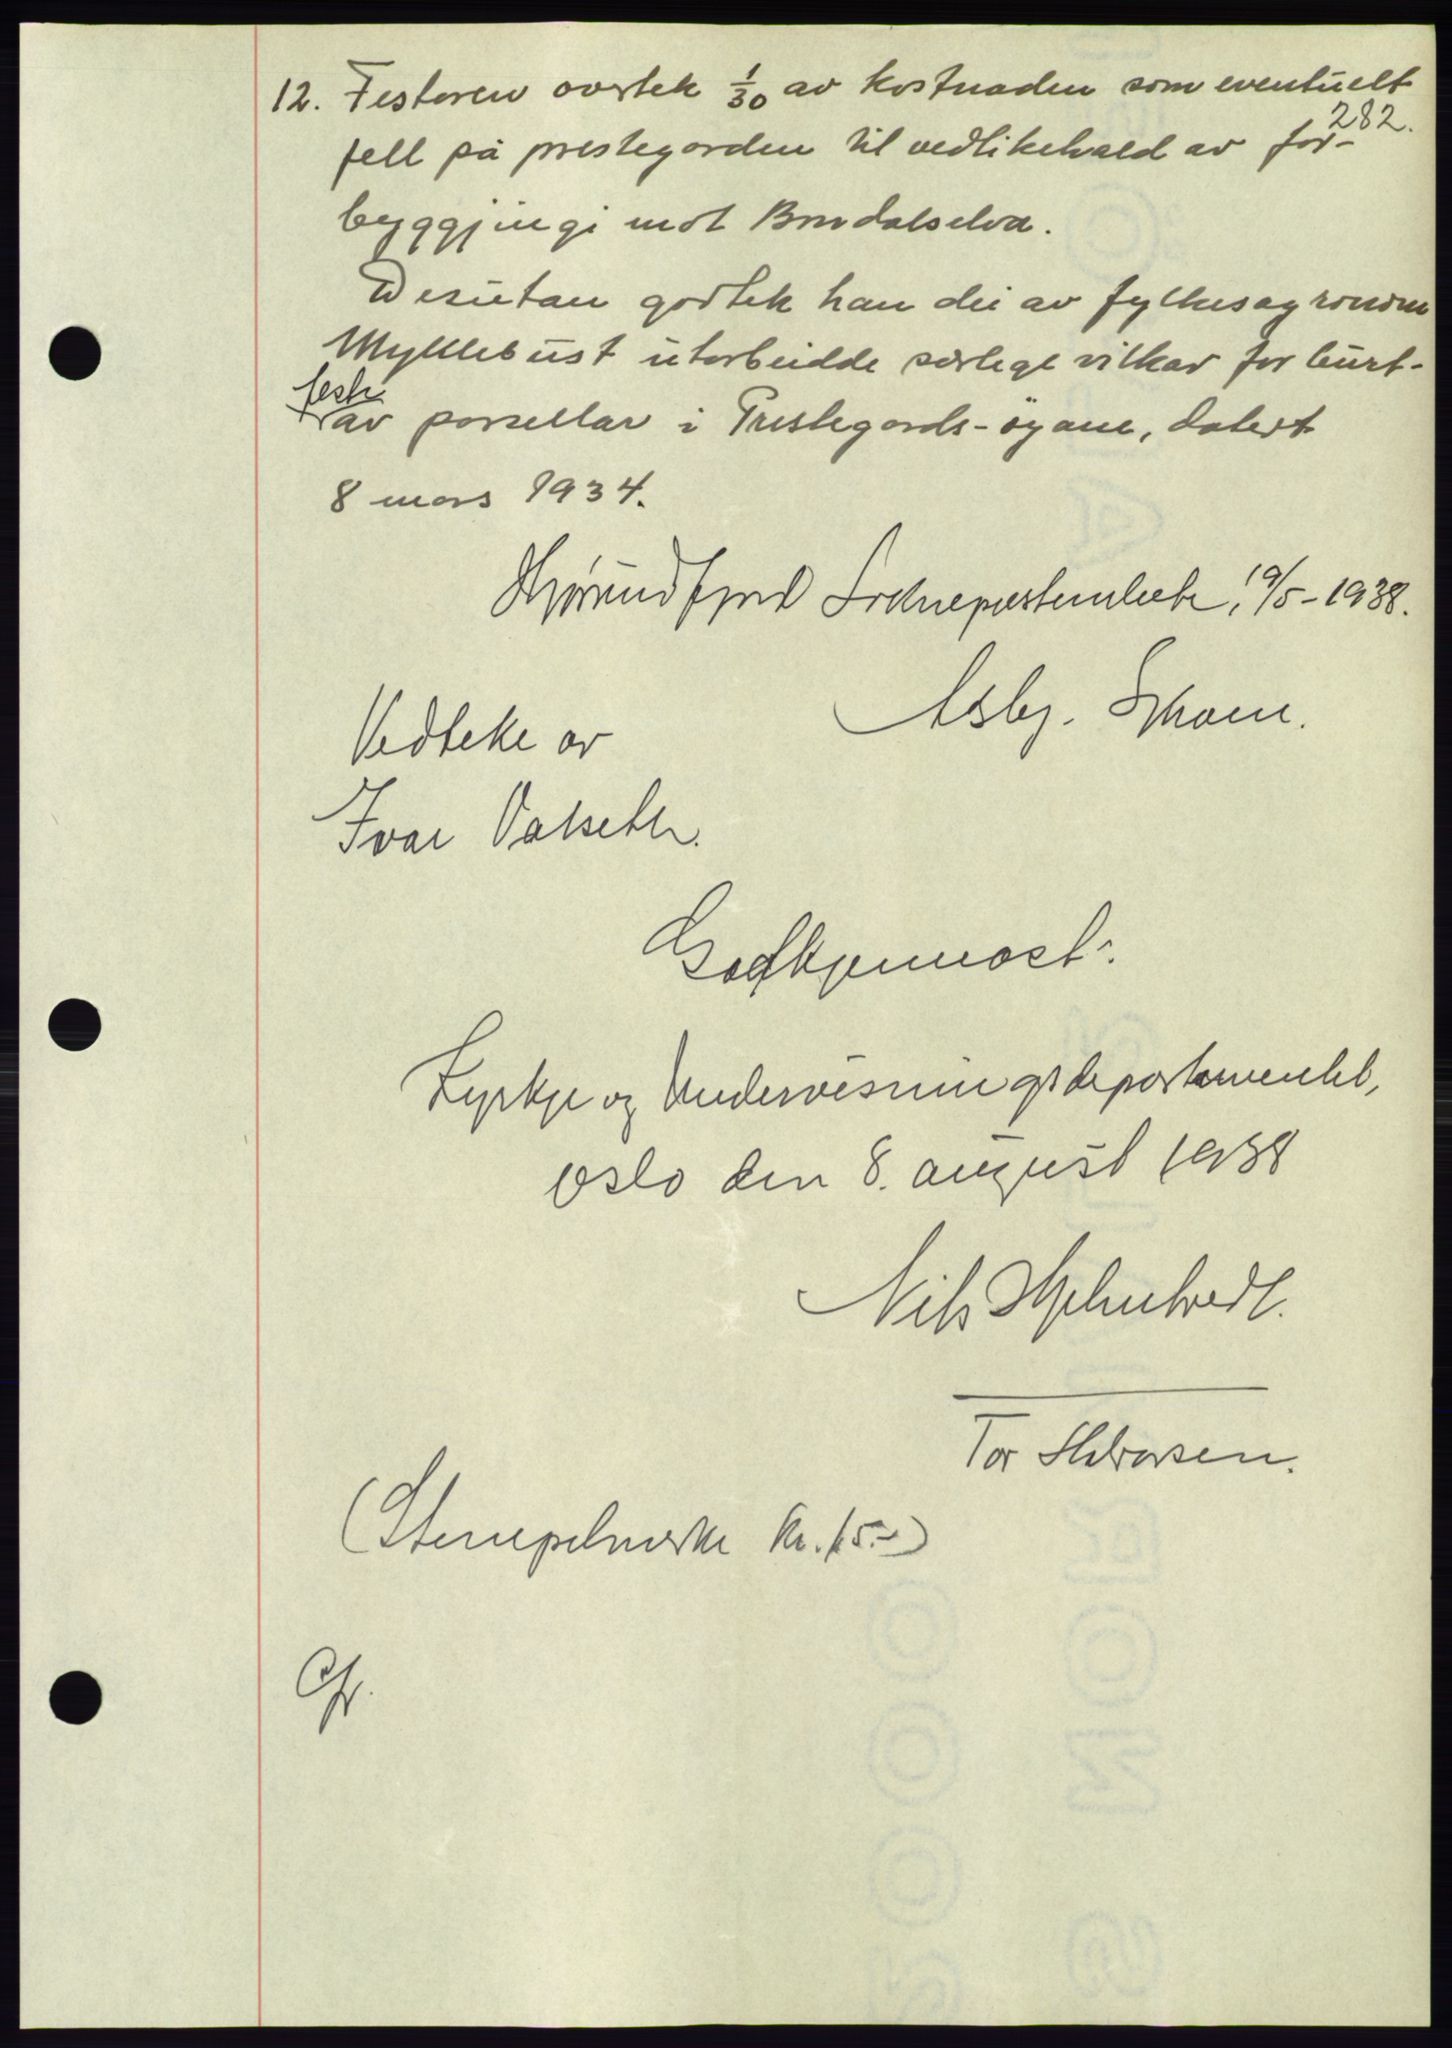 12. Festaren overtek 1/30 av kostnaden som eventuelt
282.
fell på prestegarden til vedlikehald av for-
byggjingi mot Bondalselva.
Desutan godtek han dei av fylkesagronom
Myklebust utarbeidde særlege vilkår for burt-
feste
av parsellar i Prestegards-øyane, datert
8 mars 1934.
Hjørundfjord Soknepresteembete, 19/5-1938.
Asbj.
Vedteke av
Ivar Valseth.
Godkjennast:
Kyrkje og Undervisningsdepartementet,
Oslo den 8. august 1938
Nils Hjelmtveit.
Tor Halvorsen.
(Stempelmerke kr. 15.-)